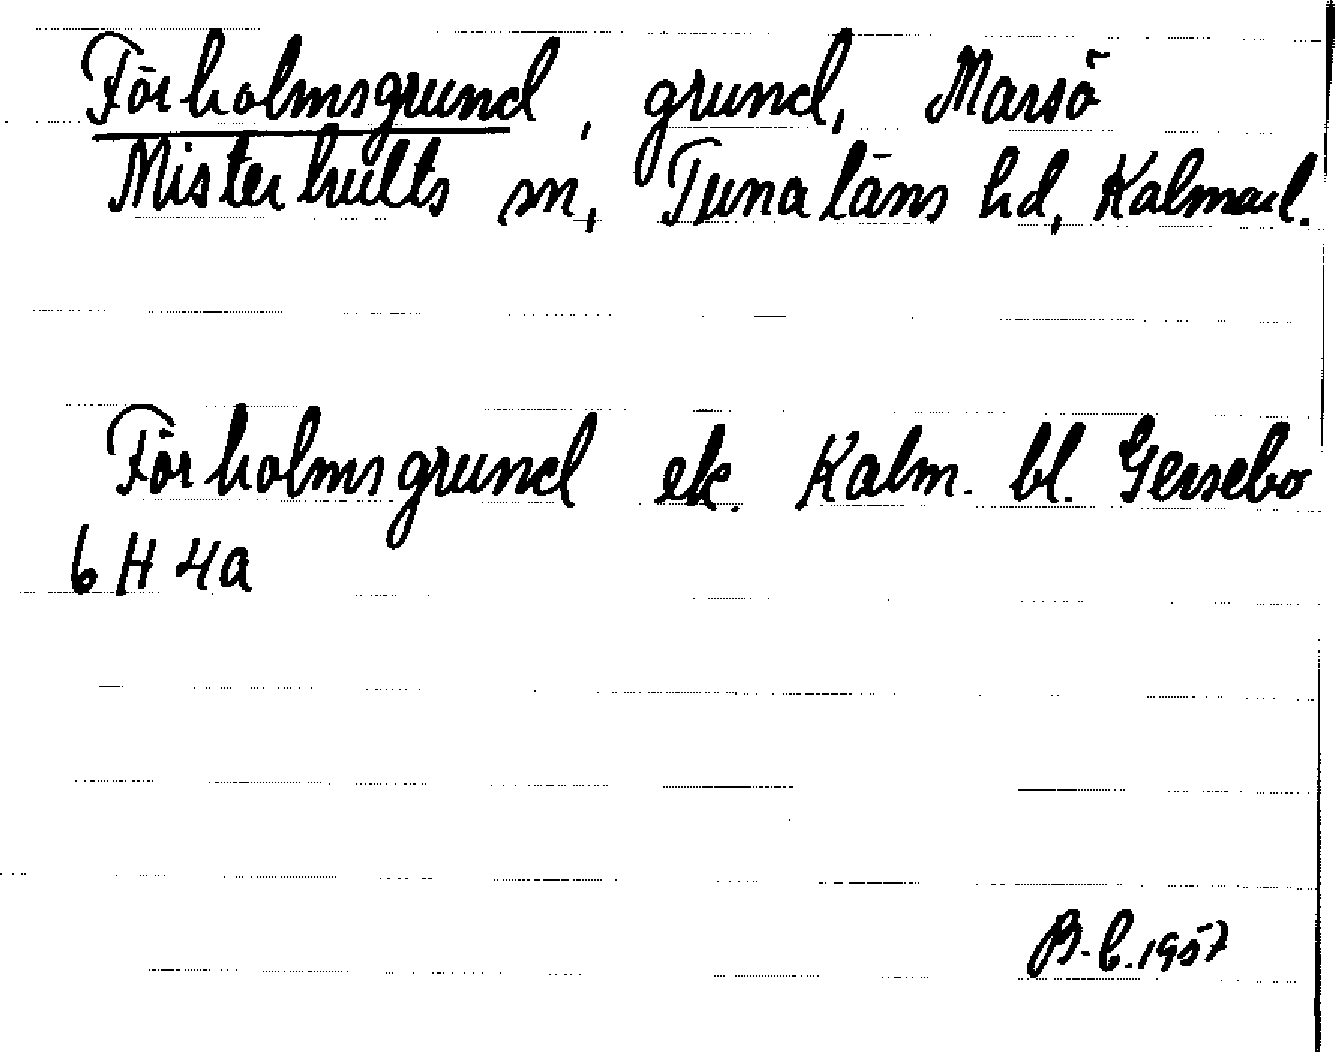 Förholmsgrund, grund, Marsö
Misterhults sn, Tunaläns hd, Kalmarl.
Förholmsgrund ek. Kalm. bl. Gersebo
6 H 4a
B-b. 1957